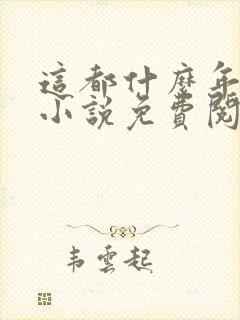 這都什麼年
小說免費閱
韦雲起